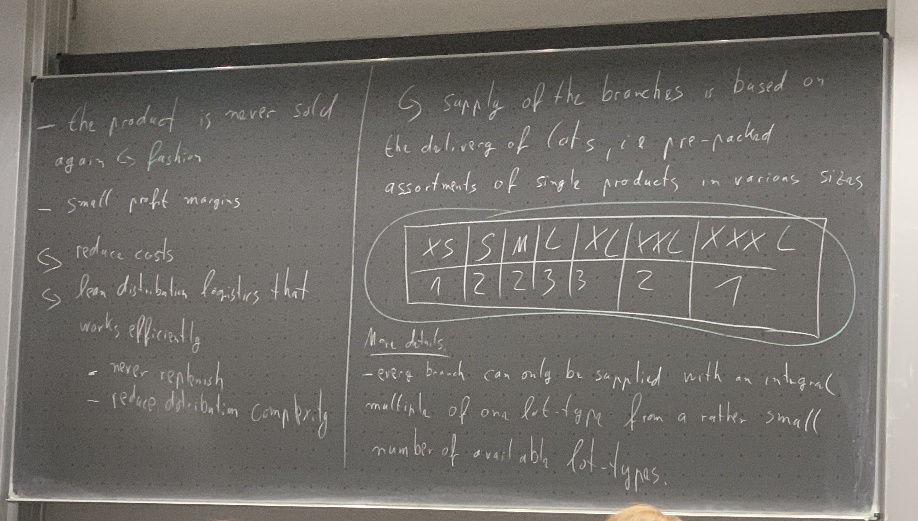 - the product is never sold
again ↪ fashion
- small profit margins
↪ reduce costs
↪ lean distribution logistics that
works efficiently
- never replenish
- reduce distribution complexity
↪ supply of the branches is based on
the delivery of lots, i e pre-packed
assortments of single products in various sizes
XS S M L XL XXL XXXL
1 2 2 3 3 2 1
More details:
- every branch can only be supplied with an integral
multiple of one lot-type from a rather small
number of available lot-types.